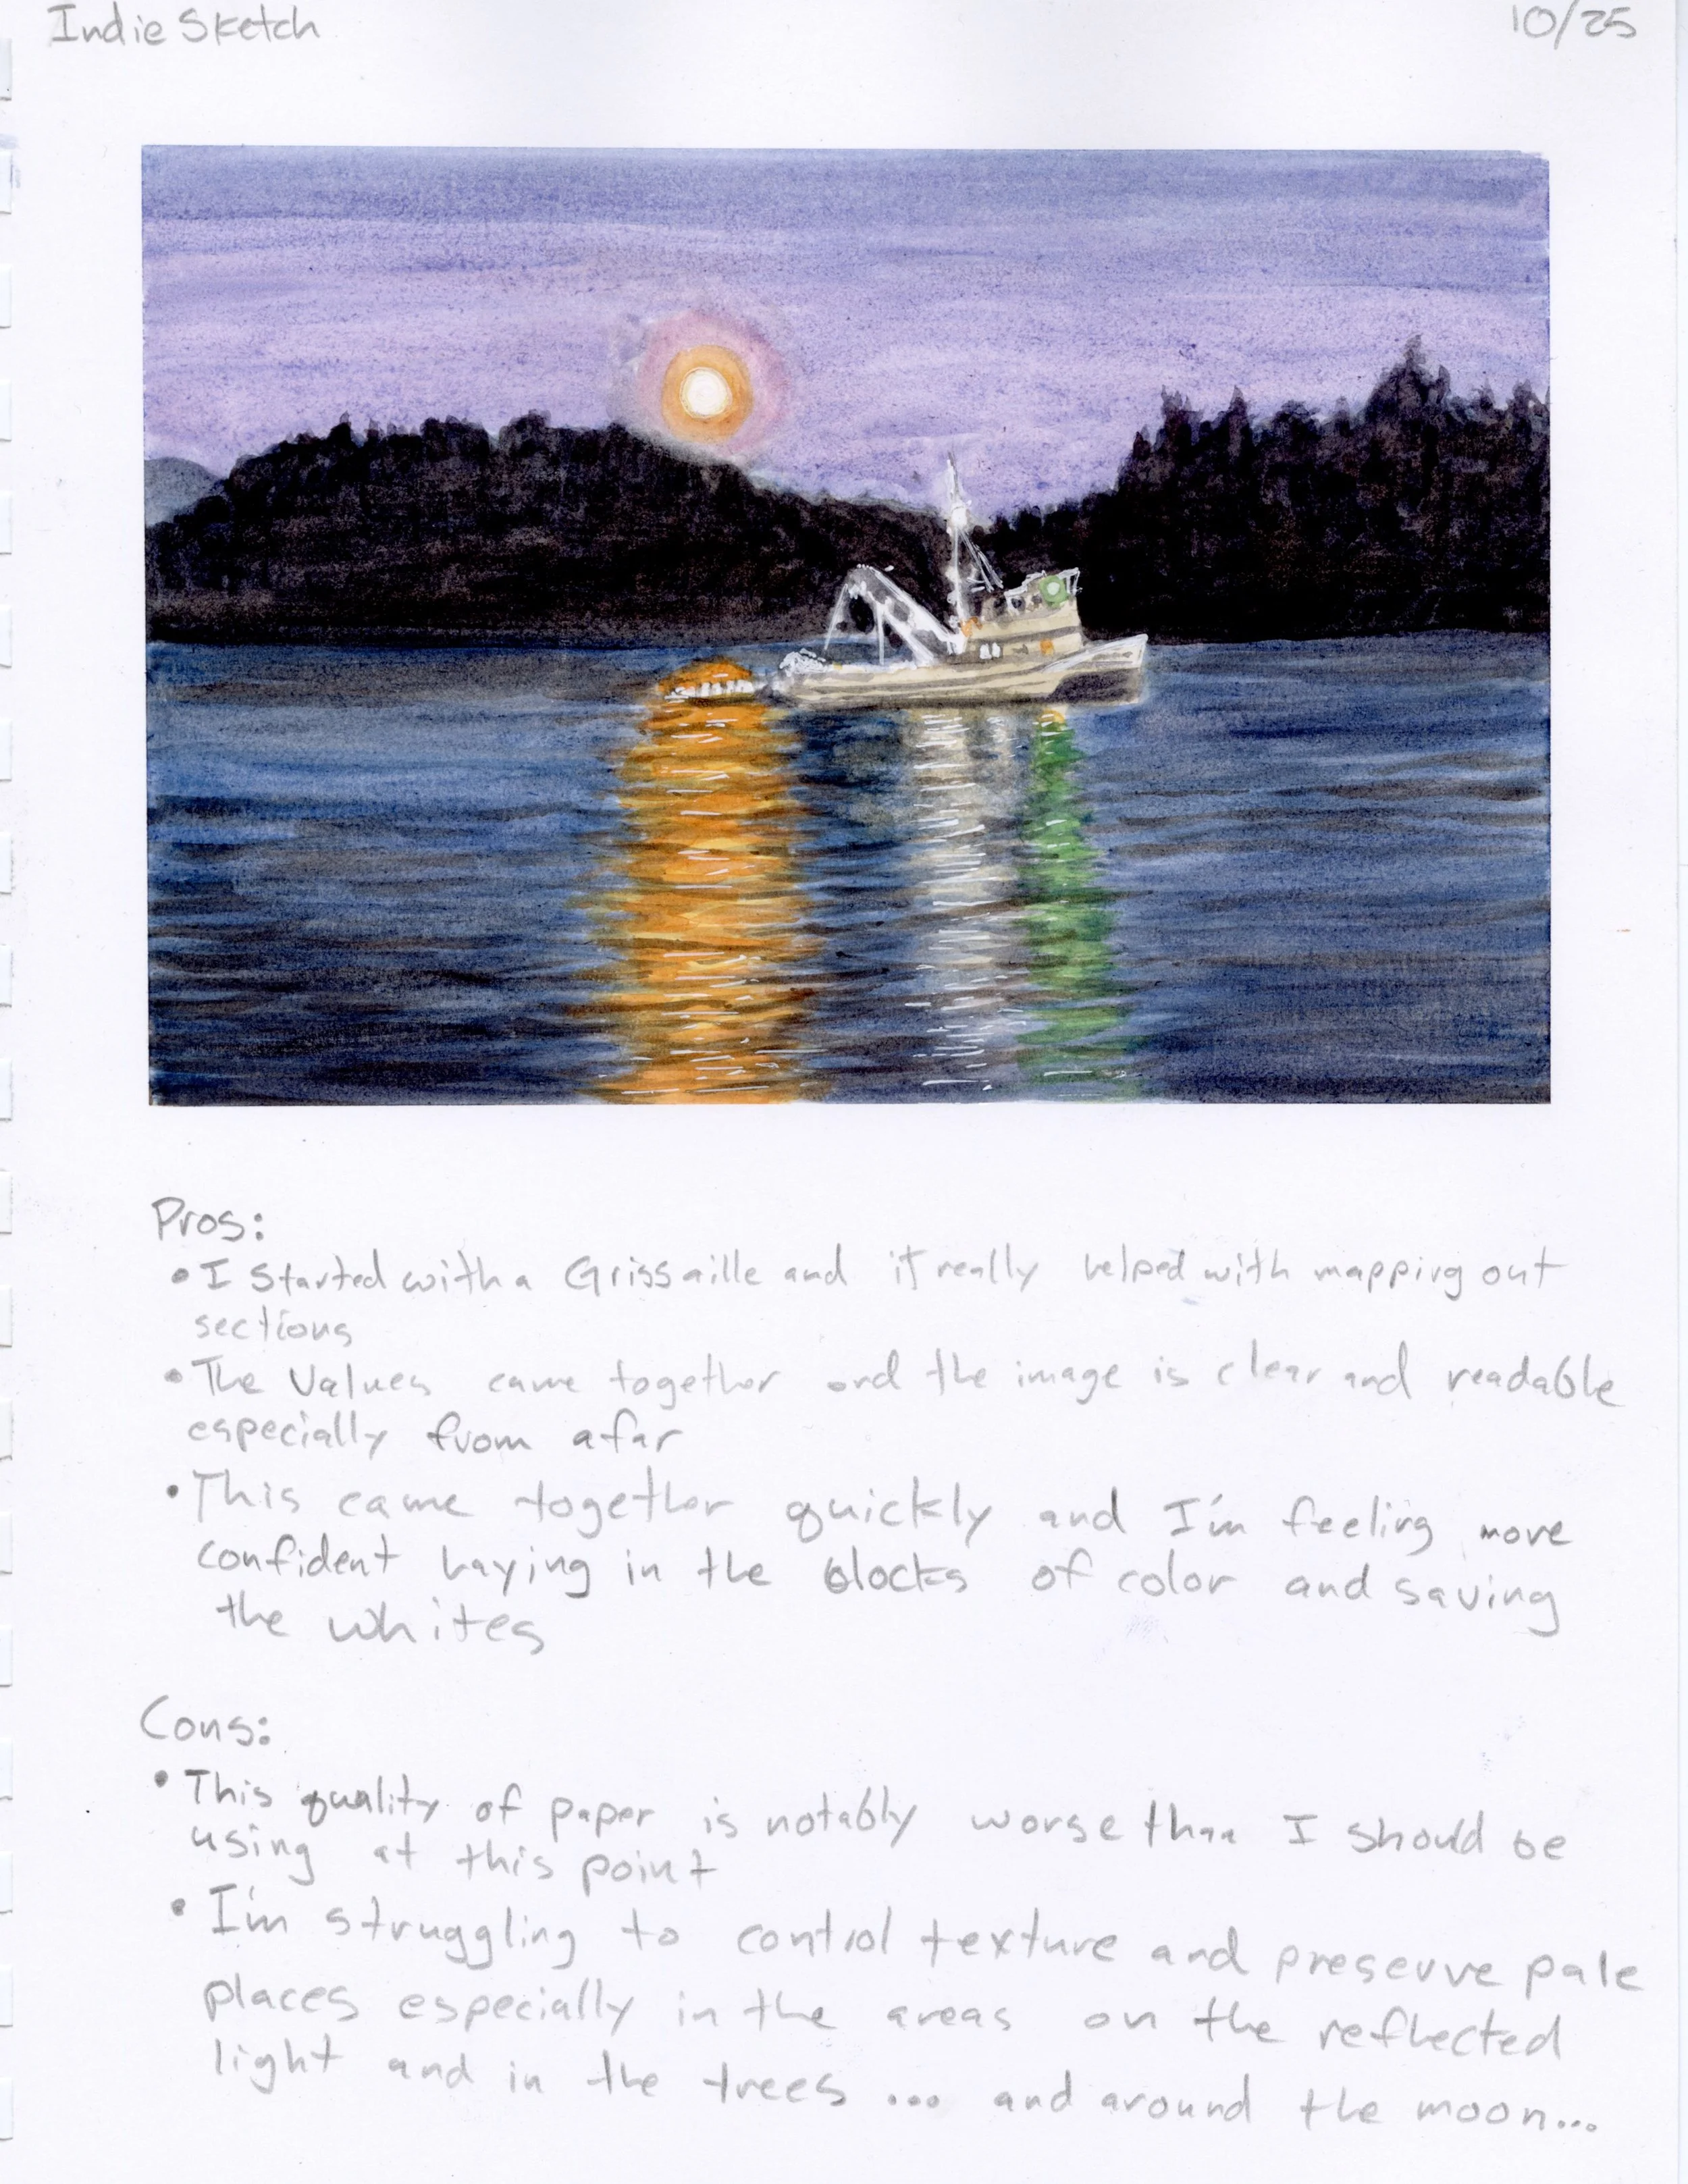 Indie Sketch
10/25
Pros:
• I started with a Grissaille and it really helped with mapping out
sections
• The Values came together and the image is clear and readable
especially from afar
• This came together quickly and I'm feeling more
confident laying in the blocks of color and saving
the whites
Cons:
• This quality of paper is notably worse than I should be
using at this point
• I'm struggling to control texture and preserve pale
places especially in the areas on the reflected
light and in the trees ... and around the moon...